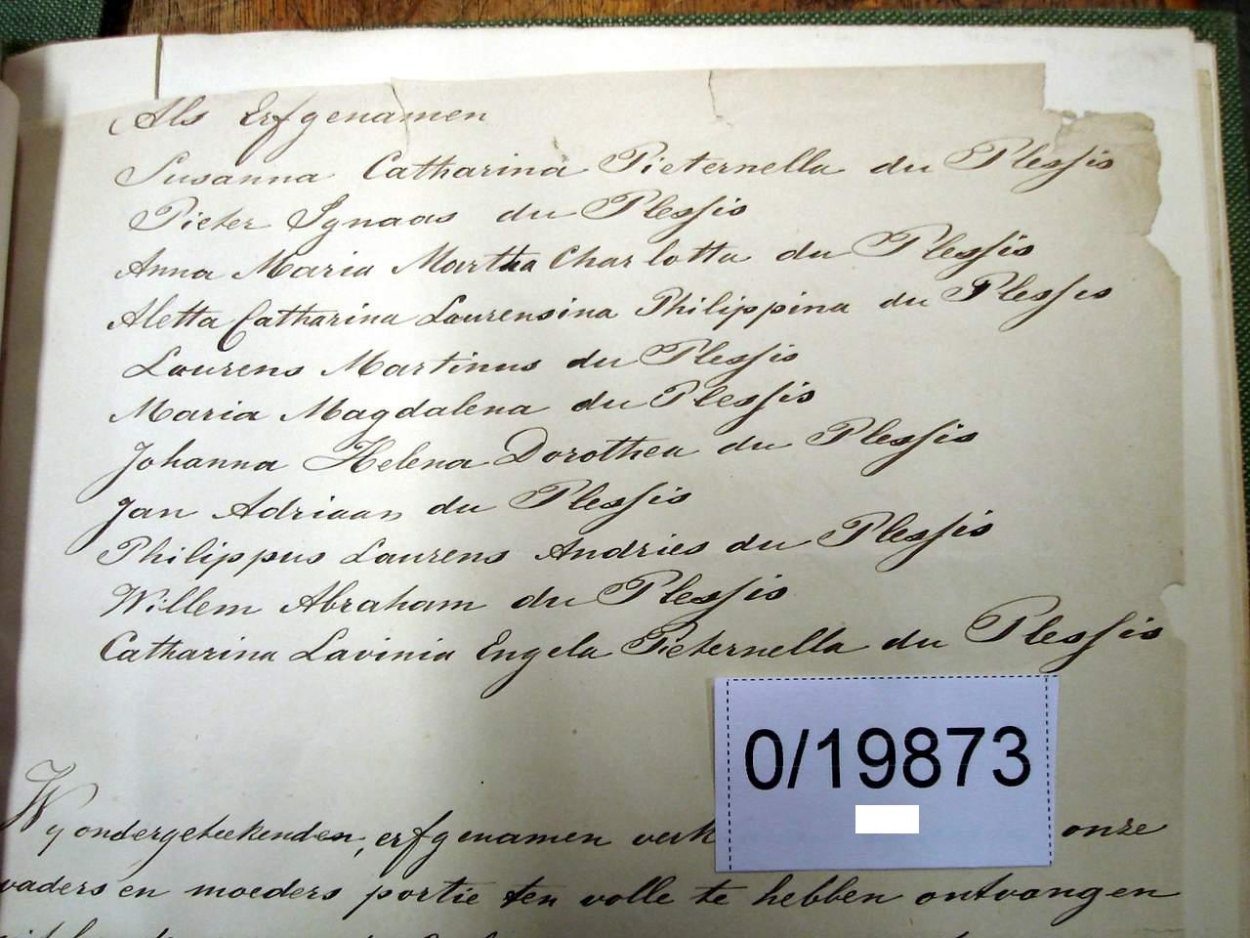 Als Erfgenamen
Susanna Catharina Pieternella du Plessis
Pieter Ignaas du Plessis
Anna Maria Martha Charlotta du Plessis
Aletta Catharina Laurensina Philippina du Plessis
Lourens Martinus du Plessis
Maria Magdalena du Plessis
Johanna Helena Dorothea du Plessis
Jan Adriaan du Plessis
Philippus Laurens Andries du Plessis
Willem Abraham du Plessis
Catharina Lavinia Engela Pieternella du Plessis
0/19873
Wy ondergeteekenden, erfgenamen verk onze
vaders en moeders portie ten volle te hebben ontvangen